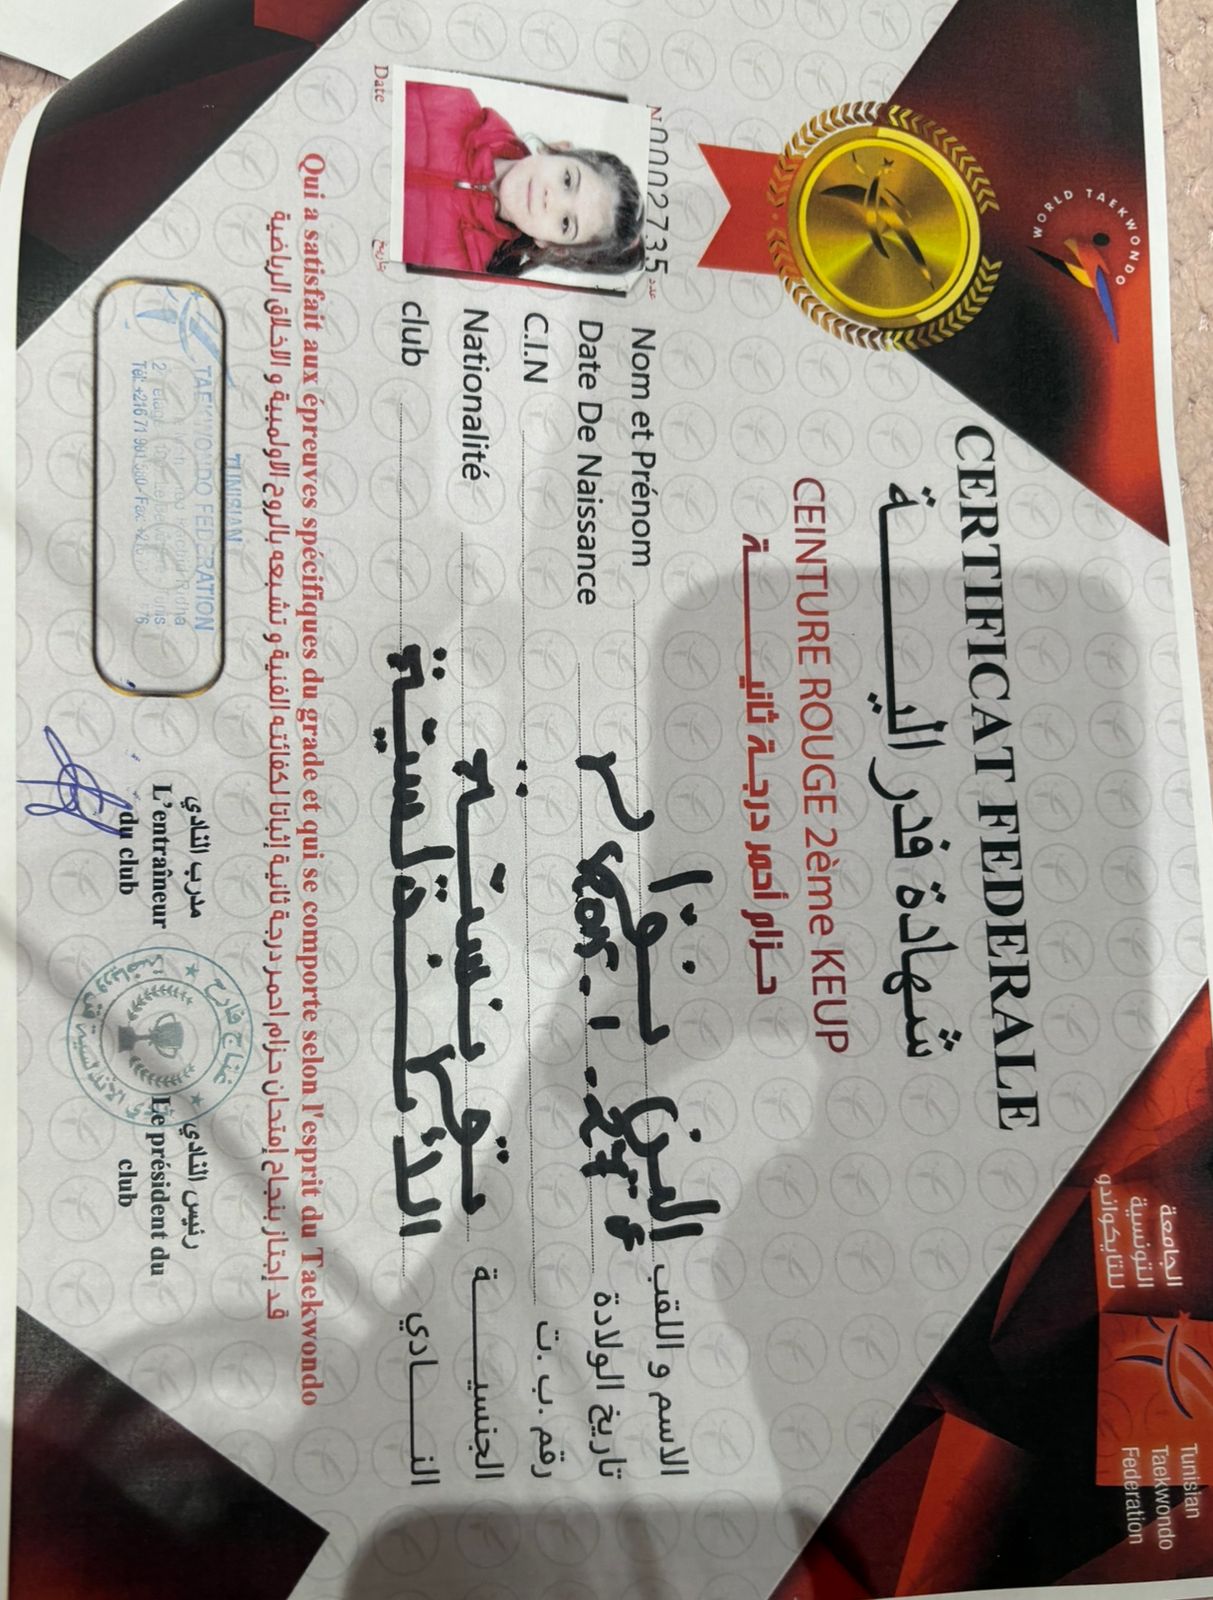 WORLD TAEKWONDO
الجامعة
التونسية
للتايكواندو
Tunisian
Taekwondo
Federation
CERTIFICAT FEDERALE
شهادة فدرالية
CEINTURE ROUGE 2ème KEUP
حزام أحمر درجة ثانية
N 0002735 عدد
Nom et Prénom الاسم و اللقب
Date De Naissance تاريخ الولادة
C.I.N رقم ب.ت.
Nationalité تونسية الجنسية
club الأندلسية النادي
Date تاريخ
Qui a satisfait aux épreuves spécifiques du grade et qui se comporte selon l'esprit du Taekwondo
قد إجتاز بنجاح إمتحان حزام احمر درجة ثانية إثباتا لكفائته الفنية و تشبعه بالروح الاولمبية و الاخلاق الرياضية
TUNISIAN
TAEKWONDO FEDERATION
Tél: +216 71
مدرب النادي
L'entraîneur
du club
رئيس النادي
Le président du
club